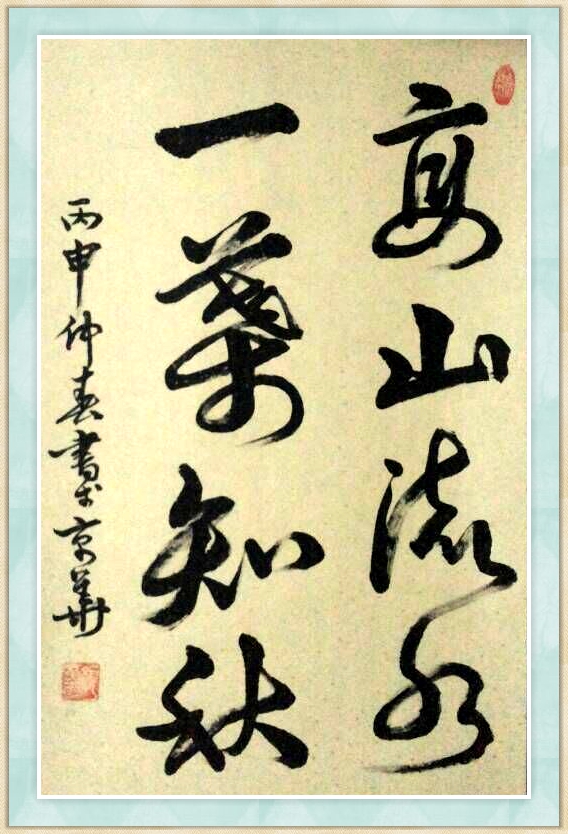 高山流水
一葉知秋
丙申仲春書於京華